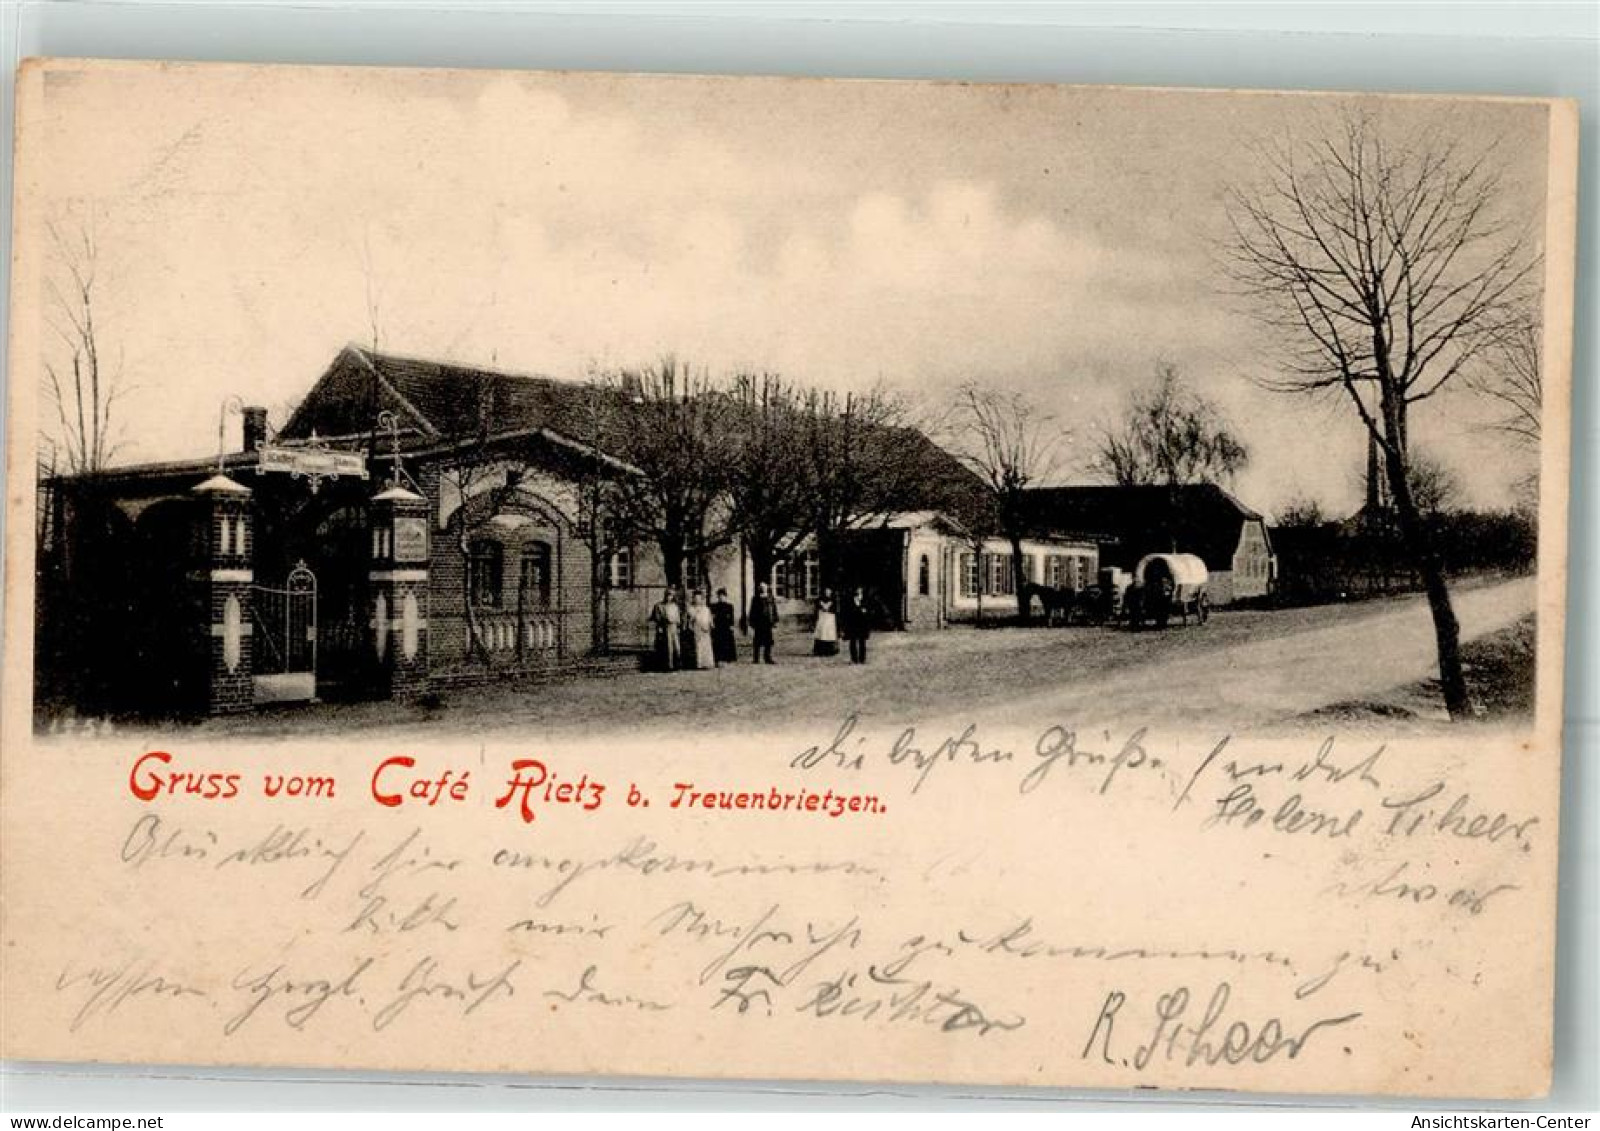 Gruss vom Café Rietz b. Treuenbrietzen.
Die besten Grüße sendet
Helene Scheer.
Glücklich hier angekommen.
bitte mir Nachricht zukommen zu
lassen. Herzl. Gruß Dein Fr. Richter
R. Scheer.
Ansichtskarten-Center